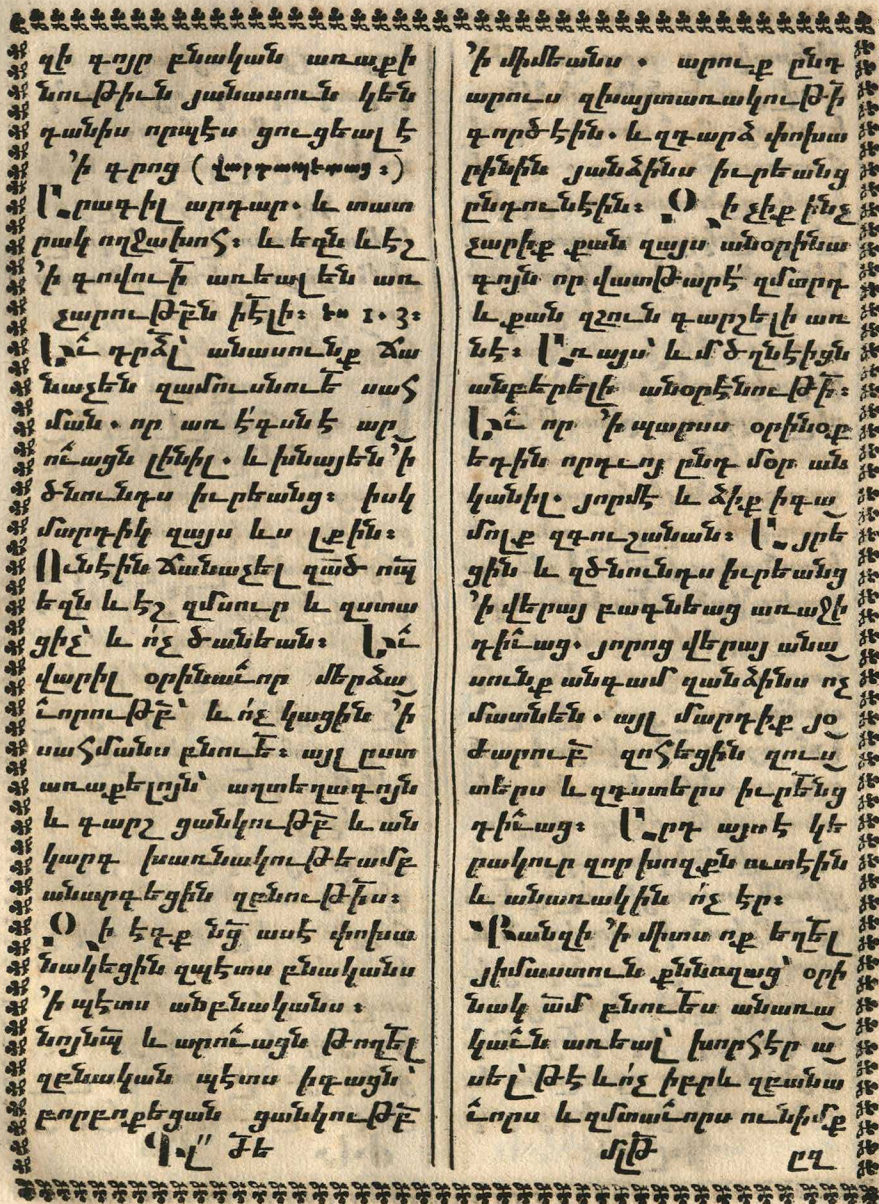 զի գոյր բնական առաքի
նութիւն յանասուն կեն
դանիս որպէս ցուցեալ է
՚ի գրոց (վարդապետաց։)
Արագիլ արդար. և տատ
րակ ողջախոհ։ և եզն և էշ
՚ի գովու՟ի առեալ են առ
չարութբ՟ն իէլի։ ես 1. 3։
Եւ՟ դրձլ՟ անասունք ճա
նաչեն զամուսնուե՟ սահ
ման. որ առ էգսն է ար
ու՟ացն լինիլ. և խնայեն ՚ի
ծնունդս իւրեանց։ իսկ
մարդիկ զայս ևս լքին։
Ունէին ճանաչել զա՟ծ ոպ՟
եզն և էշ զմսուր և զստա
ցիչ՝ և ո՛չ ծանեան։ Եւ՟
վարիլ օրինաւ՟որ մերձա
ւ՟որութբ՟՝ և ո՛չ կացին ՚ի
սահմանս բնուե՟։ այլ ըստ
առաքելոյն՝ աղտեղագոյն
և գարշ ցանկութբ՟ և ան
կարգ խառնակութեամբ
անարգեցին զբնութի՟ս։
Զի էգք նց՟ ասէ փոխա
նակեցին զպէտս բնականս
՚ի պէտս անբնականս։
նոյնպ՟ և արու՟ացն թողել՟
զբնական պէտս իգացն՝
բորբոքեցան ցանկութբ՟
Գ.լ՟՟ ՟ե
՚ի միմեանս. արուք ընդ
արուս զխայտառակութի՟
գործէին. և զդարձ փոխա
րինին յանձինս իւրեանց
ընդունէին։ Զի չիք ինչ
չարիք քան զայս անօրինա
գոյն որ վատթարէ՛ զմարդ
և քան զշուն գարշելի առ
նէ։ Առ այս՝ և մծղնէիցն
անբերելի անօրէնութի՟։
Եւ՟ որ ՚ի պարսս օրինօք
եդին որդւոյ ընդ մօր ան
կանիլ. յորմէ և ձիք իգա
մոլք զգուշանան։ Այրե
ցին և զծնունդս իւրեանց
՚ի վերայ բագնեաց առաջի
դիւ՟աց. յորոց վերայ անա
սունք անգամ զանձինս ոչ
մատնեն. այլ մարդիք յօ
ժարուբ՟ զոհեցին զուս
տերս և զդստերս իւրե՟նց
դիւ՟աց։ Արդ այս է կե
րակուր զոր խոզքն ուտէին
և անառակին ո՛չ էր։
Քանզի ՚ի միտս ոք եղե՟լ
յիմաստուն քննողաց՝ օրի
նակ ա՟մ բնուե՟ս անառա
կաւ՟ն առեալ՝ խորհէր ա
սել՝ թէ և ո՛չ իբրև զբանա
ւ՟որս և զմտաւ՟որս ունիմք
մլթ՟ ըղ